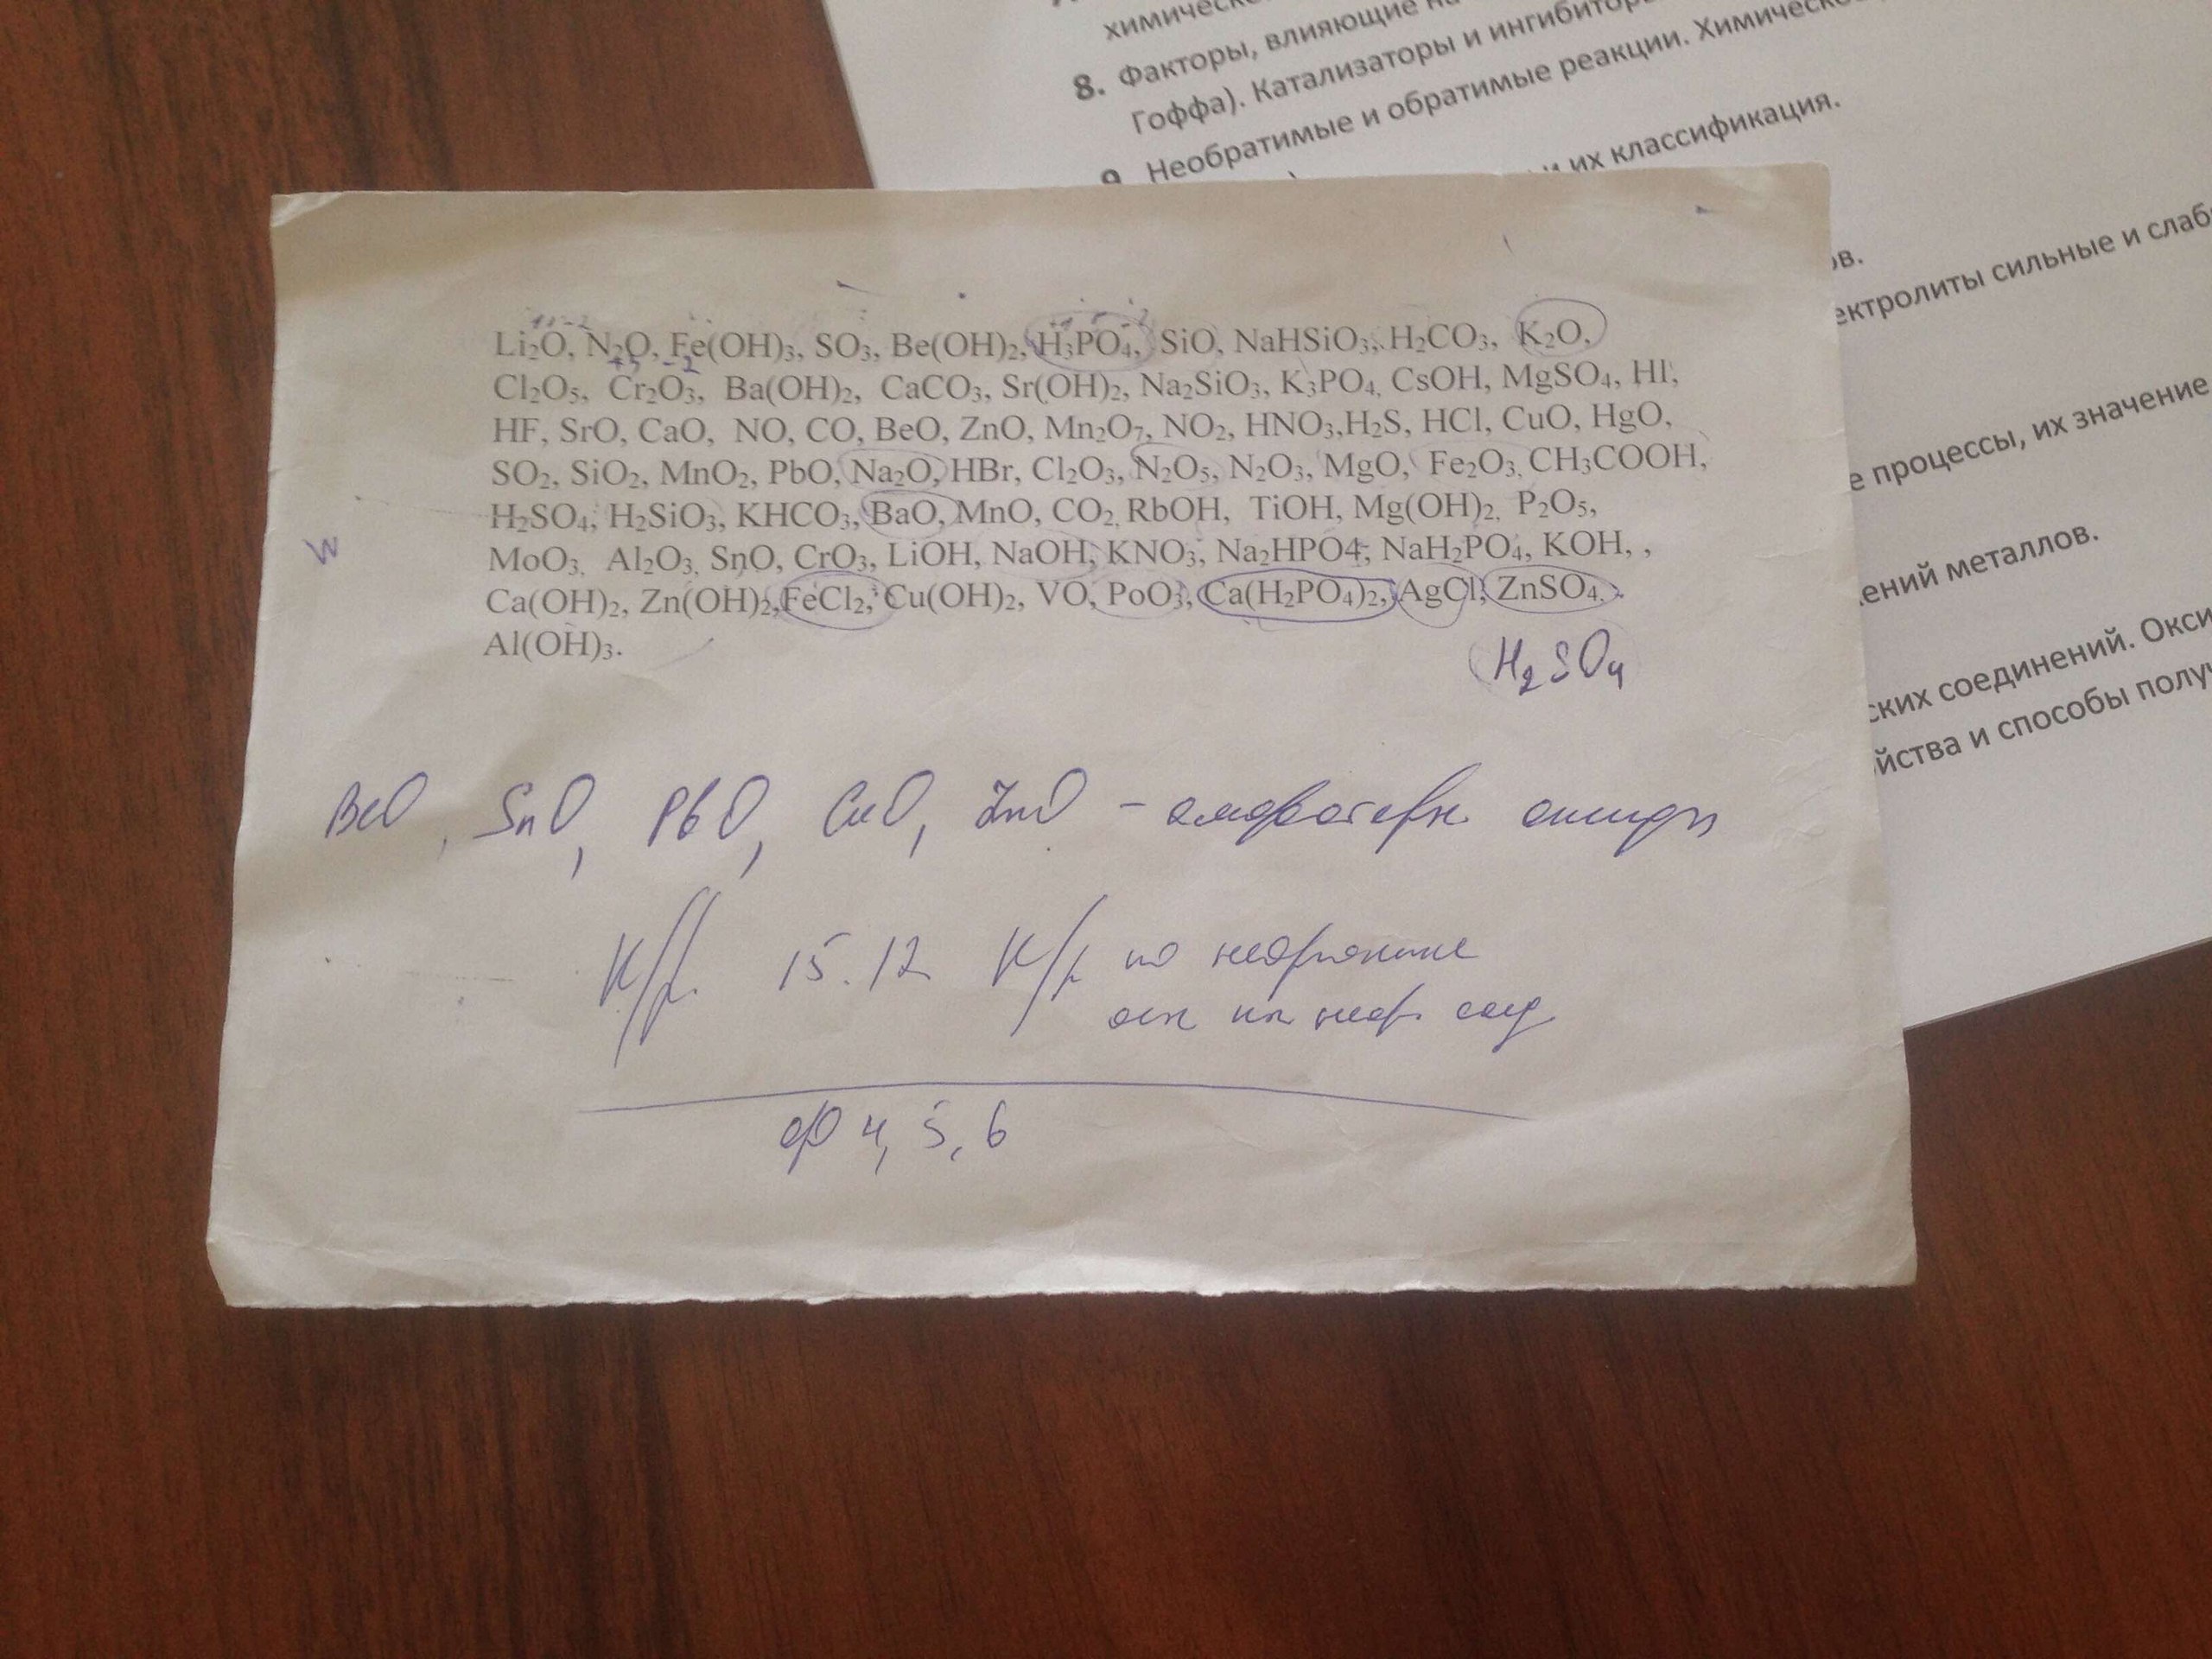 химическ
8. Факторы, влияющие на
Гоффа). Катализаторы и ингибитор
9. Необратимые и обратимые реакции. Химическо
и их классификация.
ов.
ектролиты сильные и слаб
е процессы, их значение
ений металлов.
ских соединений. Окси
йства и способы получ
Li₂O, N₂O, Fe(OH)₃, SO₃, Be(OH)₂, H₃PO₄, SiO, NaHSiO₃, H₂CO₃, K₂O,
+3 -2
Cl₂O₅, Cr₂O₃, Ba(OH)₂, CaCO₃, Sr(OH)₂, Na₂SiO₃, K₃PO₄, CsOH, MgSO₄, HI,
HF, SrO, CaO, NO, CO, BeO, ZnO, Mn₂O₇, NO₂, HNO₃,H₂S, HCl, CuO, HgO,
SO₂, SiO₂, MnO₂, PbO, Na₂O, HBr, Cl₂O₃, N₂O₅, N₂O₃, MgO, Fe₂O₃, CH₃COOH,
H₂SO₄, H₂SiO₃, KHCO₃, BaO, MnO, CO₂, RbOH, TiOH, Mg(OH)₂, P₂O₅,
MoO₃, Al₂O₃, SnO, CrO₃, LiOH, NaOH, KNO₃, Na₂HPO4, NaH₂PO₄, KOH, ,
Ca(OH)₂, Zn(OH)₂,FeCl₂, Cu(OH)₂, VO, PoO₃, Ca(H₂PO₄)₂, AgCl, ZnSO₄, .
Al(OH)₃.
H₂SO₄
BeO, SnO, PbO, CuO, ZnO – амфотерн. оксиды
К/р. 15.12 К/р по неорганике
осн кл неор. соед.
4, 5, 6